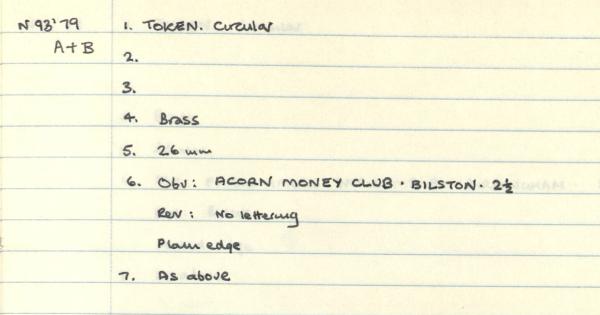 N 93'79 1. TOKEN. Circular
A+B
2.
3.
4. Brass
5. 26 mm
6. Obv: ACORN MONEY CLUB · BILSTON · 2½
Rev: No lettering
Plain edge
7. As above